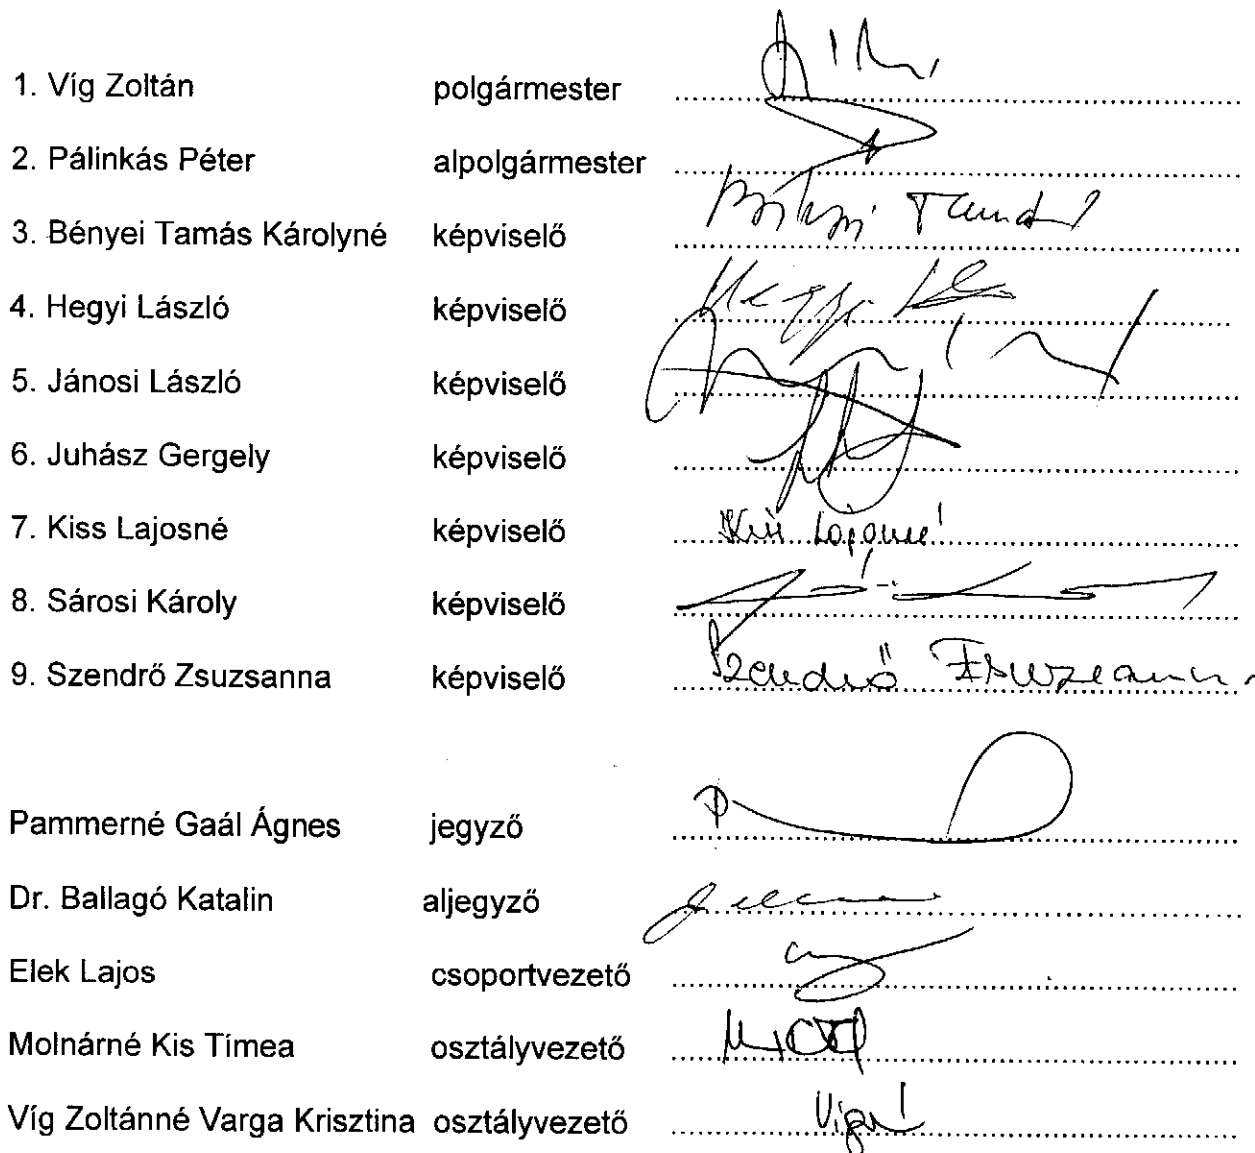 1. Víg Zoltán polgármester
2. Pálinkás Péter alpolgármester
3. Bényei Tamás Károlyné képviselő
4. Hegyi László képviselő Hegyi
5. Jánosi László képviselő
6. Juhász Gergely képviselő
7. Kiss Lajosné képviselő Kiss Lajosné
8. Sárosi Károly képviselő
9. Szendrő Zsuzsanna képviselő Szendrő Zsuzsanna
Pammerné Gaál Ágnes jegyző
Dr. Ballagó Katalin aljegyző
Elek Lajos csoportvezető
Molnárné Kis Tímea osztályvezető
Víg Zoltánné Varga Krisztina osztályvezető